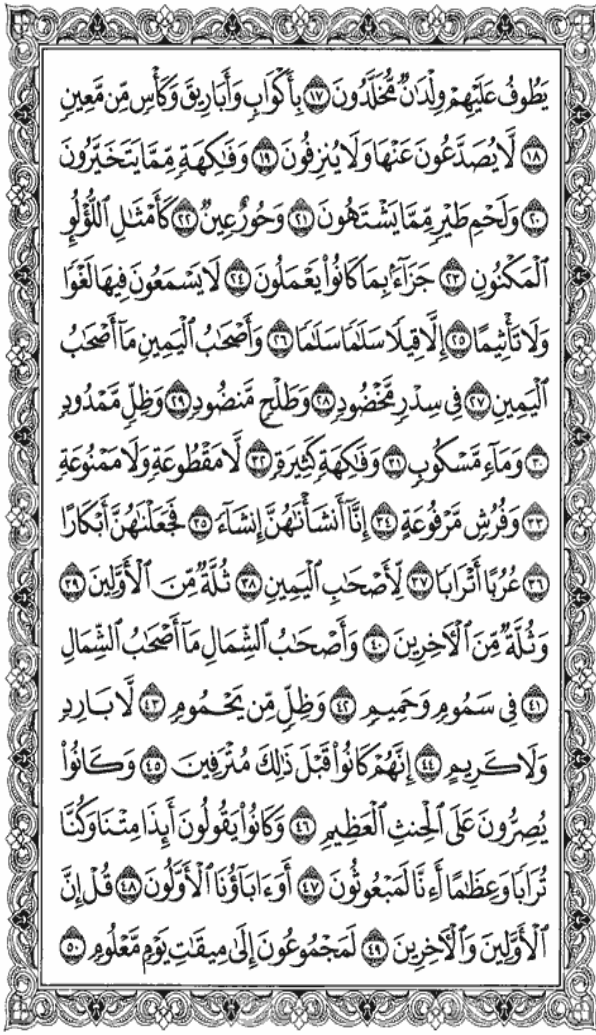 يَطُوفُ عَلَيْهِمْ وِلْدَٰنٌ مُّخَلَّدُونَ ١٧ بِأَكْوَابٍ وَأَبَارِيقَ وَكَأْسٍ مِّن مَّعِينٍ
١٨ لَّا يُصَدَّعُونَ عَنْهَا وَلَا يُنزِفُونَ ١٩ وَفَٰكِهَةٍ مِّمَّا يَتَخَيَّرُونَ
٢٠ وَلَحْمِ طَيْرٍ مِّمَّا يَشْتَهُونَ ٢١ وَحُورٌ عِينٌ ٢٢ كَأَمْثَٰلِ اللُّؤْلُؤِ
الْمَكْنُونِ ٢٣ جَزَآءًۢ بِمَا كَانُوا۟ يَعْمَلُونَ ٢٤ لَا يَسْمَعُونَ فِيهَا لَغْوًا
وَلَا تَأْثِيمًا ٢٥ إِلَّا قِيلًا سَلَٰمًا سَلَٰمًا ٢٦ وَأَصْحَٰبُ الْيَمِينِ مَآ أَصْحَٰبُ
الْيَمِينِ ٢٧ فِى سِدْرٍ مَّخْضُودٍ ٢٨ وَطَلْحٍ مَّنضُودٍ ٢٩ وَظِلٍّ مَّمْدُودٍ
٣٠ وَمَآءٍ مَّسْكُوبٍ ٣١ وَفَٰكِهَةٍ كَثِيرَةٍ ٣٢ لَّا مَقْطُوعَةٍ وَلَا مَمْنُوعَةٍ
٣٣ وَفُرُشٍ مَّرْفُوعَةٍ ٣٤ إِنَّآ أَنشَأْنَٰهُنَّ إِنشَآءً ٣٥ فَجَعَلْنَٰهُنَّ أَبْكَارًا
٣٦ عُرُبًا أَتْرَابًا ٣٧ لِّأَصْحَٰبِ الْيَمِينِ ٣٨ ثُلَّةٌ مِّنَ الْأَوَّلِينَ ٣٩
وَثُلَّةٌ مِّنَ الْـَٔاخِرِينَ ٤٠ وَأَصْحَٰبُ الشِّمَالِ مَآ أَصْحَٰبُ الشِّمَالِ
٤١ فِى سَمُومٍ وَحَمِيمٍ ٤٢ وَظِلٍّ مِّن يَحْمُومٍ ٤٣ لَّا بَارِدٍ
وَلَا كَرِيمٍ ٤٤ إِنَّهُمْ كَانُوا۟ قَبْلَ ذَٰلِكَ مُتْرَفِينَ ٤٥ وَكَانُوا۟
يُصِرُّونَ عَلَى الْحِنثِ الْعَظِيمِ ٤٦ وَكَانُوا۟ يَقُولُونَ أَئِذَا مِتْنَا وَكُنَّا
تُرَابًا وَعِظَٰمًا أَءِنَّا لَمَبْعُوثُونَ ٤٧ أَوَءَابَآؤُنَا الْأَوَّلُونَ ٤٨ قُلْ إِنَّ
الْأَوَّلِينَ وَالْـَٔاخِرِينَ ٤٩ لَمَجْمُوعُونَ إِلَىٰ مِيقَٰتِ يَوْمٍ مَّعْلُومٍ ٥٠